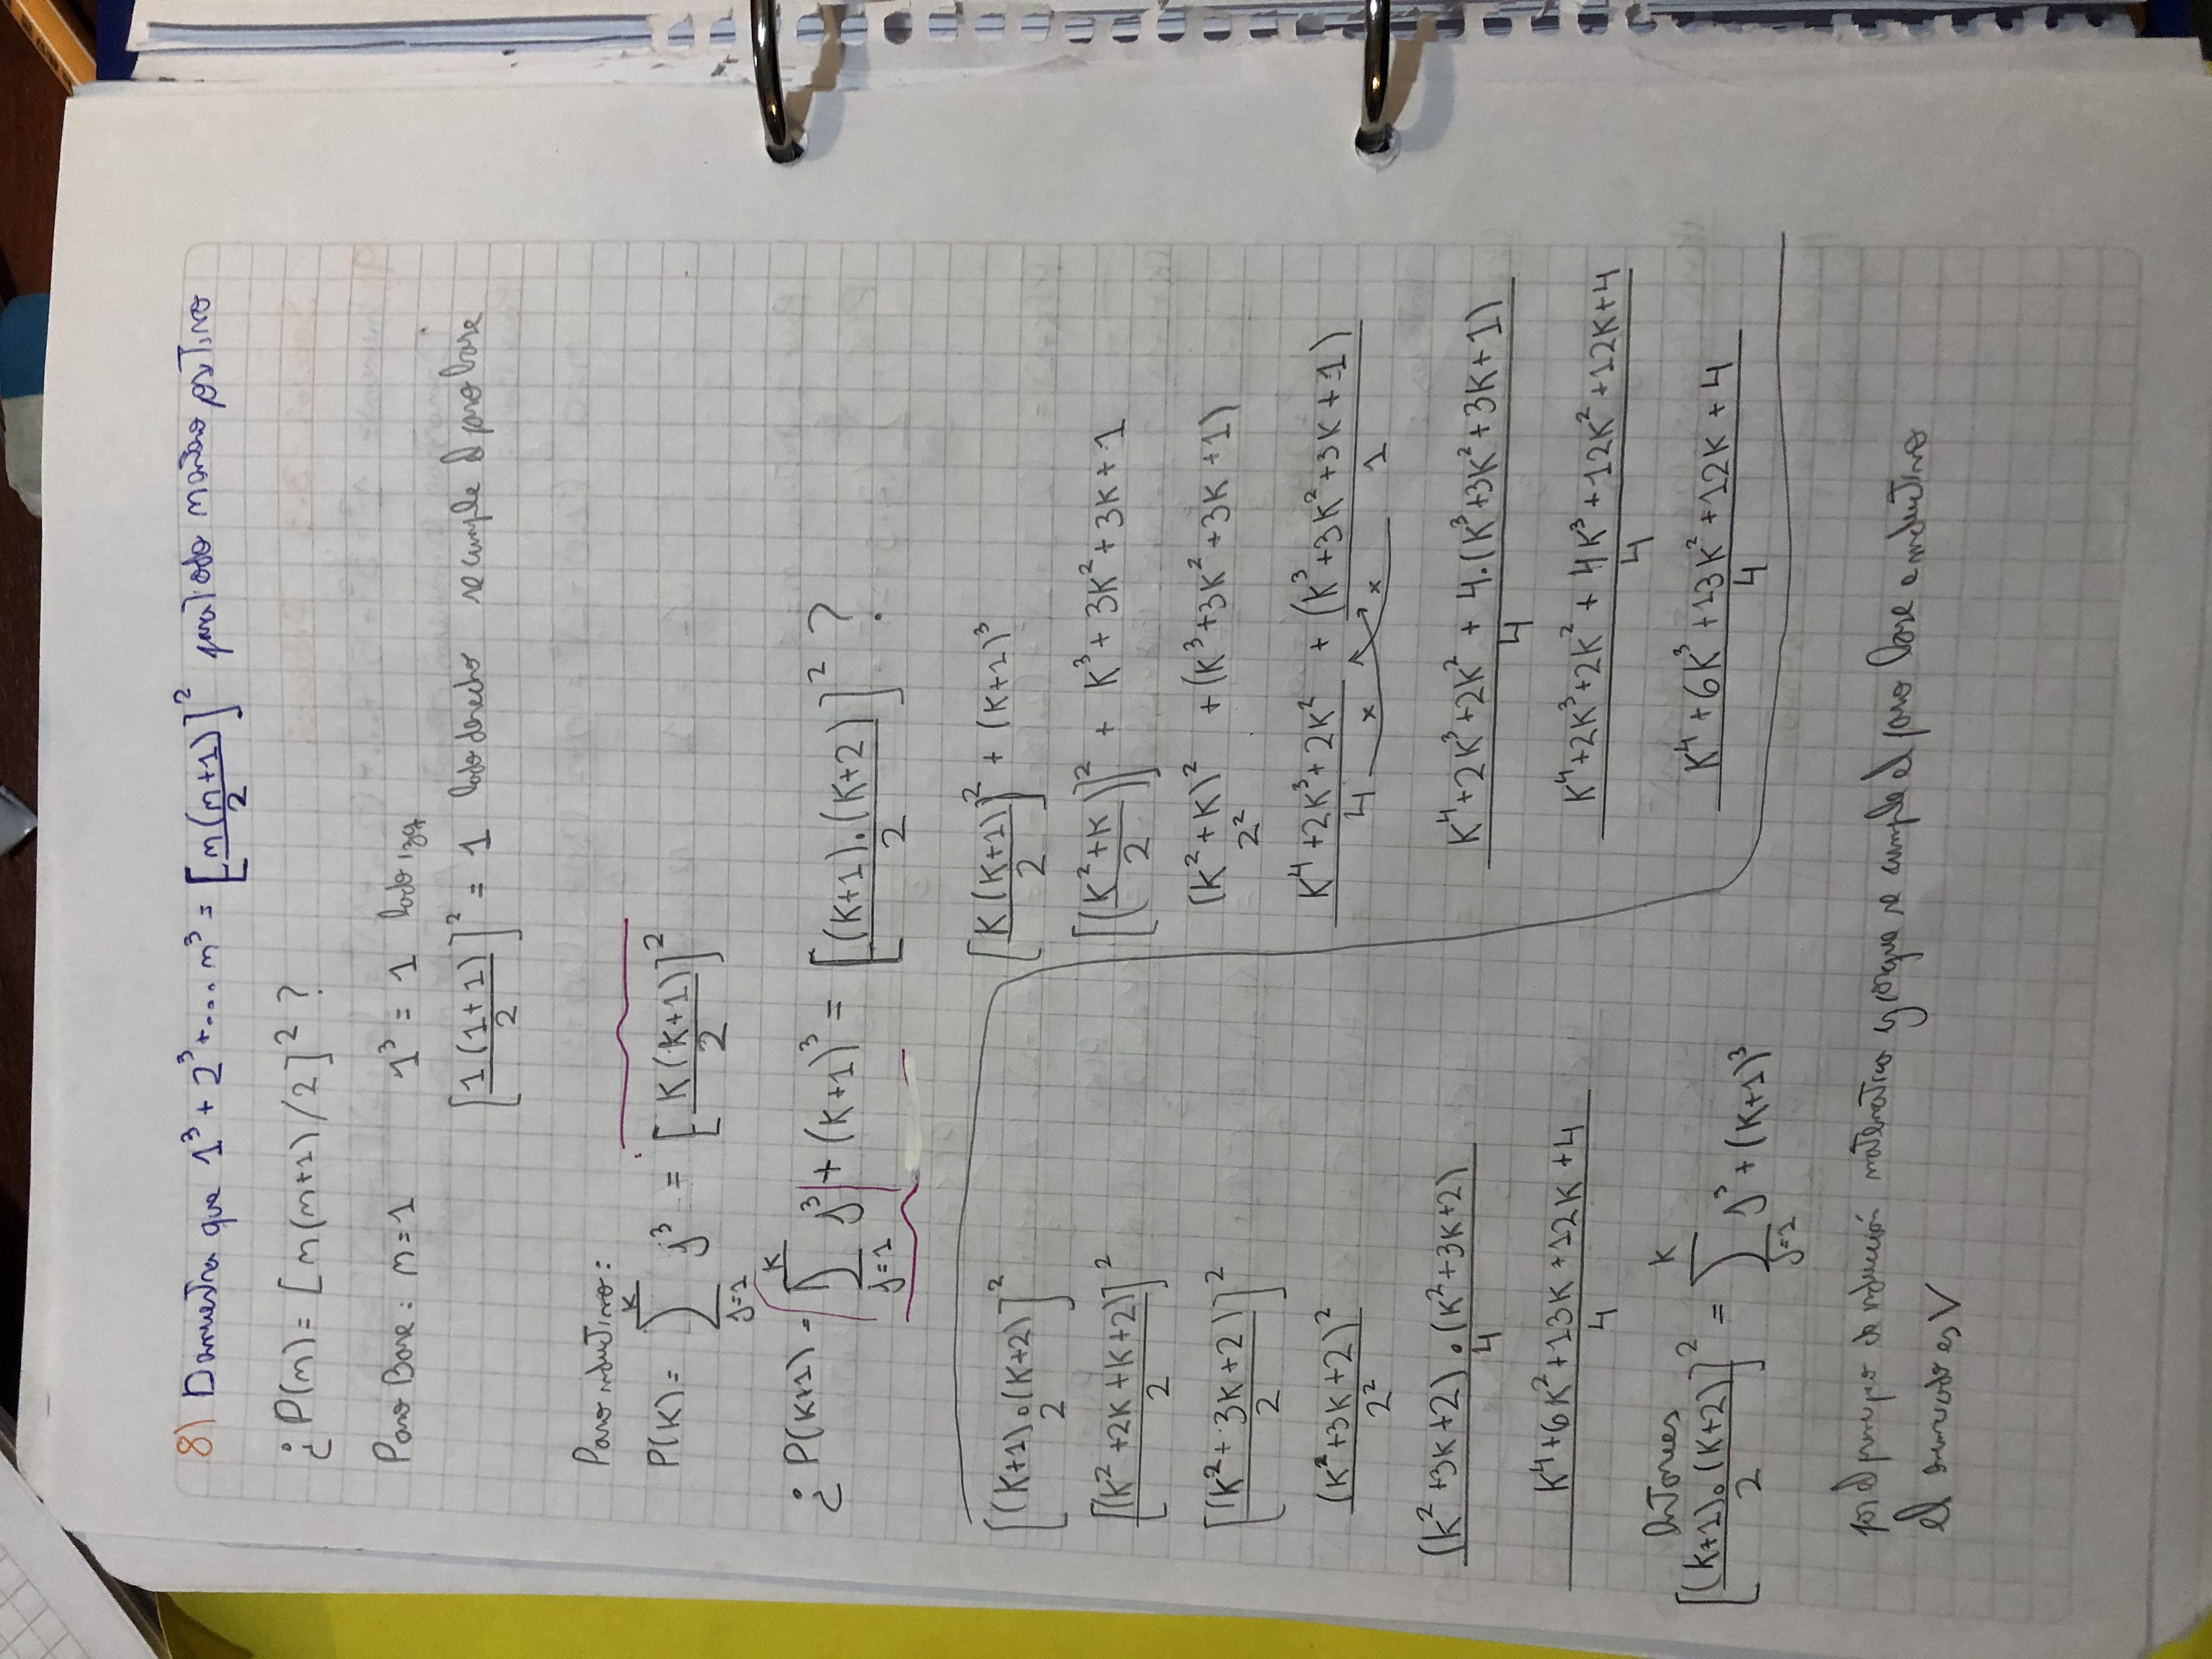 8) Demuestra que 1³ + 2³ + ... n³ = [n(n+1)/2]² para todo n entero positivo
¿P(n) = [n(n+1)/2]² ?
Paso Base: n=1 1³ = 1 lado izq
[1(1+1)/2]² = 1 lado derecho se cumple el paso base
Paso inductivo:
P(K) = ∑_{j=1}^{K} j³ = [K(K+1)/2]²
¿P(K+1) = ∑_{j=1}^{K} j³ + (K+1)³ = [(K+1).(K+2)/2]² ?
[(K+1).(K+2)/2]²
[(K²+2K+K+2)/2]²
[(K²+3K+2)/2]²
(K²+3K+2)²/2²
(K²+3K+2).(K²+3K+2)/4
K⁴+6K²+13K+12K+4/4
Entonces
[(K+1).(K+2)/2]² = ∑_{j=1}^{K} j³ + (K+1)³
[K(K+1)/2]² + (K+1)³
[(K²+K/2)]² + K³+3K²+3K+1
(K²+K)²/2² + (K³+3K²+3K+1)
K⁴+2K³+2K²/4 + (K³+3K²+3K+1)/1
x x
K⁴+2K³+2K² + 4.(K³+3K²+3K+1)/4
K⁴+2K³+2K² + 4K³+12K²+12K+4/4
K⁴+6K³+13K²+12K+4/4
por el principio de inducción matematica y porque se cumple el paso base e inductivo
el enunciado es V